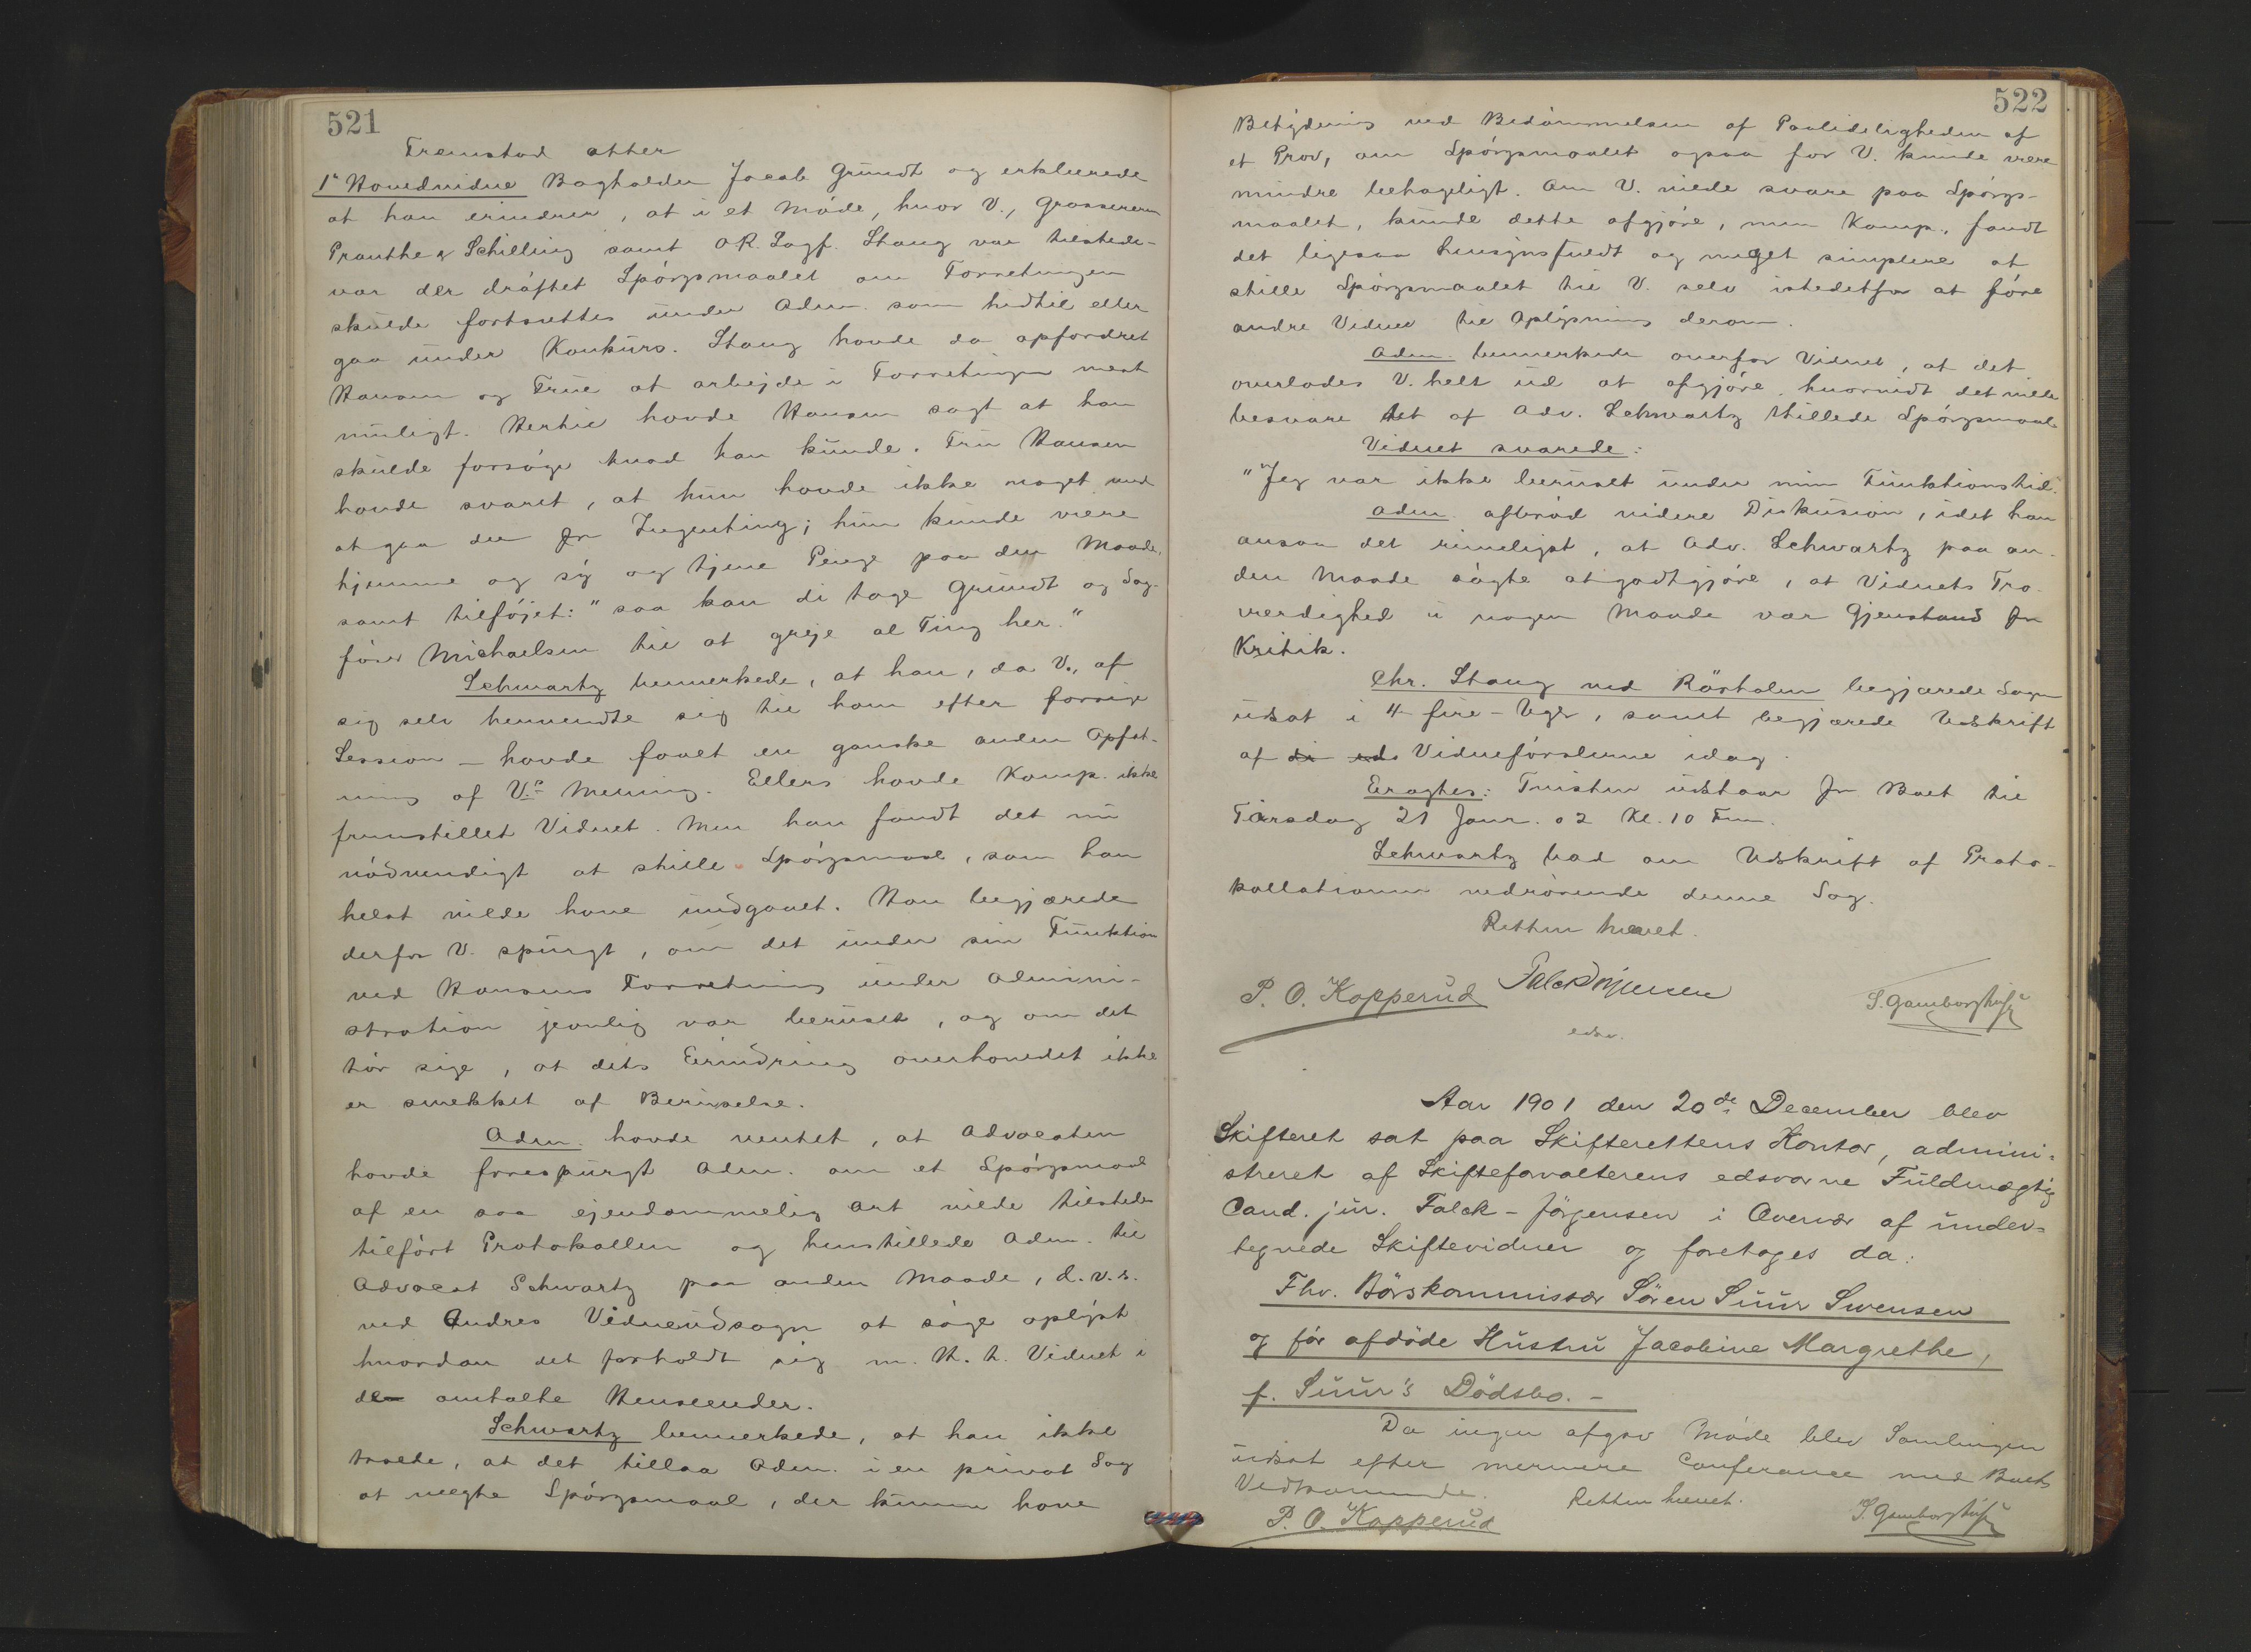 521
Fremstod atter
1ste Hovedvidne Bogholder Jacob Grundt og erklærede
at han erindrer, at i et Möde, hvor V., Grossererne
Pranthe & Schilling samt O.R. Sagf. Stang var tilstede-
var der dröftet Spörgsmaalet om Forretningen
skulde fortsættes under Adm. som hidtil eller
gaa under Konkurs. Stang havde da opfordret
Hansen og Frue at arbejde i Forretningen mest
muligt. Hertil havde Hansen sagt at han
skulde forsöge hvad han kunde. Fru Hansen
havde svaret, at hun havde ikke noget ved
at gaa der for Ingenting; hun kunde være
hjemme og sy og tjene Penge paa den Maade,
samt tilföjet: "saa kan di tage Grundt og Sag-
förer Michaelsen til at greje al Ting her."
Schwartz bemerkede, at han, da V., af
sig selv henvendte sig til ham efter forrige
Session - havde faaet en ganske anden Opfat-
ning af V.s Mening. Ellers havde Komp. ikke
fremstillet Vidnet. Men han fandt det nu
nödvendigt at stille Spörgsmaal, som han
helst vilde have undgaaet. Han begjærede
derfor V. spurgt, om det under sin Funktion
ved Hansens Forretning under Admini-
stration jevnlig var beruset, og om det
tör sige, at dets Erindring overhovedet ikke
er svækket af Beruselse.
Adm. havde ventet, at Advocaten
havde forespurgt Adm. om et Spörgsmaal
af en saa ejendommelig Art vilde tilstedes
tilfört Protokollen og henstillede Adm. til
Advocat Schwartz paa anden Maade, d.v.s.
ved Andres Vidneudsagn at söge oplyst
hvordan det forholdt sig m. H. t. Vidnet i
de omtalte Henseender.
Schwartz bemerkede, at han ikke
troede, at det tillaa Adm. i en privat Sag
at nægte Spörgsmaal, der kunne have
522
Betydning ved Bedömmelsen af Paalideligheden af
et Prov, om Spörgsmaalet ogsaa for V. kunde være
mindre behageligt. Om V. vilde svare paa Spörgs-
maalet, kunde dette afgjöre, men Komp. fandt
det ligesaa hensynsfuldt og meget simplere at
stille Spörgsmaalet til V. selv istedetfor at före
andre Vidner til Oplysning derom.
Adm. bemerkede overfor Vidnet, at det
overlodes V. helt ud at afgjöre, hvorvidt det vilde
besvare det af Adv. Schwartz stillede Spörgsmaal.
Vidnet svarede:
"Jeg var ikke beruset under min Funktionstid."
Adm. afbröd videre Diskusion, idet han
ansaa det rimeligst, at Adv. Schwartz paa an-
den Maade sögte at godtgjöre, at Vidnets Tro-
værdighed i nogen Maade var Gjenstand for
Kritik.
Chr. Stang ved Rörholen begjærede Sagen
udsat i 4 fire - Uger, samt begjærede Udskrift
af di ud Vidneförslerne idag.
Eragtes: Tvisten udstaar for Boet til
Tirsdag 21 Janr. 02 Kl. 10 Fm.
Schwartz bad om Udskrift af Proto-
kollationen vedrörende denne Sag.
Retten hævet.
P. O. Kopperud Falck Jörgensen S. Gamborg
edsv.
Aar 1901 den 20de December blev
Skifteret sat paa Skifterettens Kontor, admini-
streret af Skifteforvalterens edsvorne Fuldmægtig
Cand. jur. Falck-Jörgensen i Overvær af under-
tegnede Skiftevidner og foretages da:
Fhv. Börskommissær Sören Suur Svensen
og för afdöde Hustru Jacobine Margrethe,
f. Suur's Dödsbo. -
Da ingen afgav Möde blev Samlingen
udsat efter nærmere Conferance med Boets
Vedkommende. Retten hævet.
P. O. Kopperud S. Gamborg